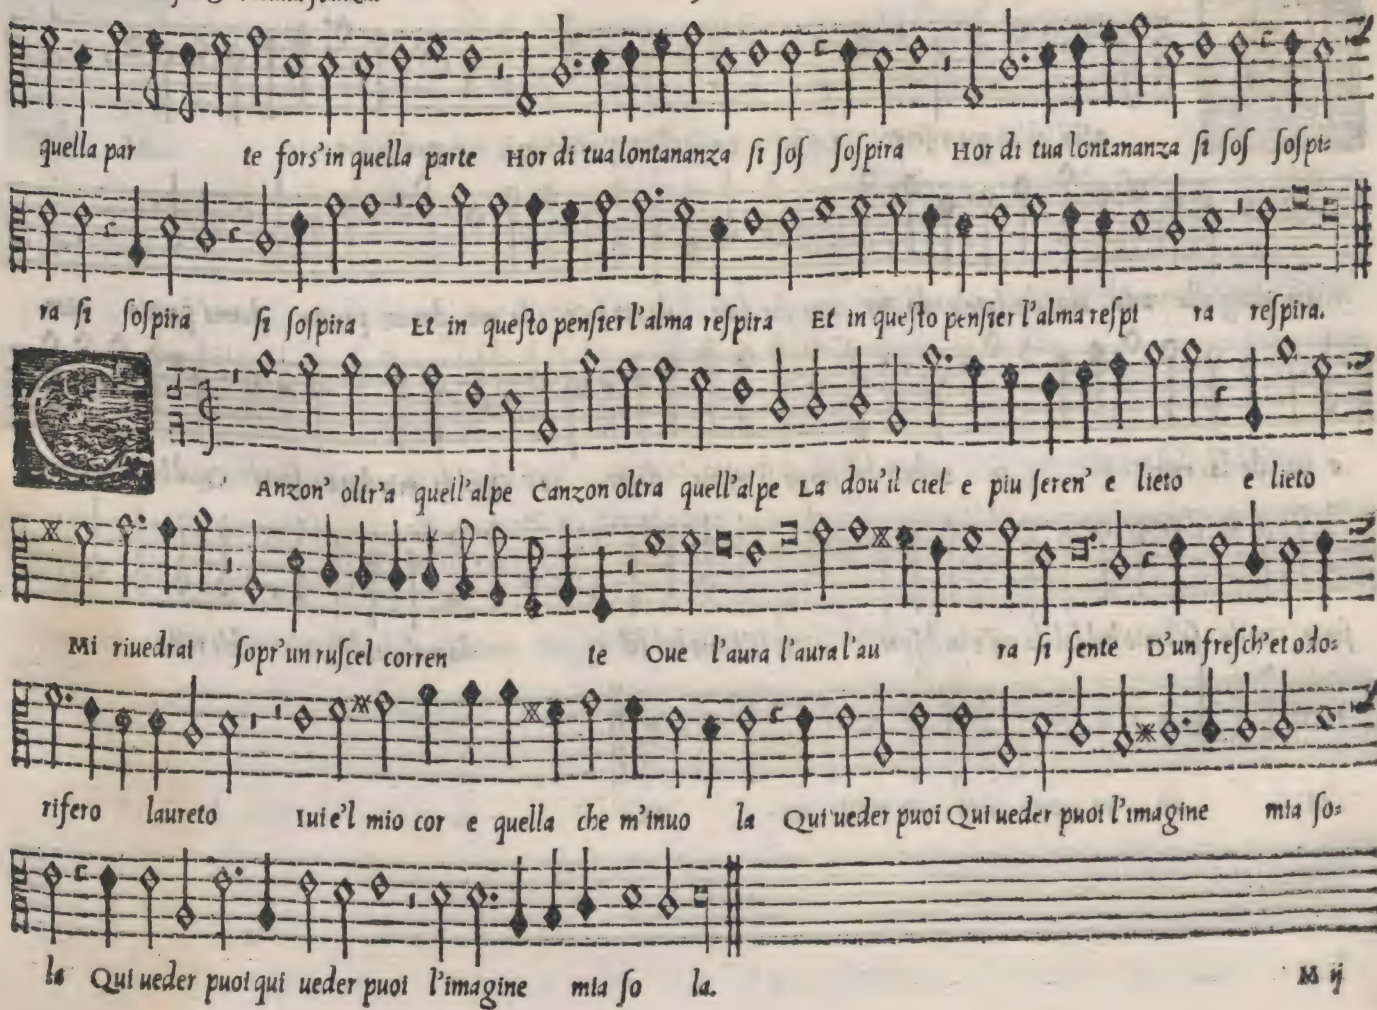 quella par te fors'in quella parte Hor di tua lontananza ſi ſoſ ſoſpira Hor di tua lontananza ſi ſoſ ſoſpi=
ra ſi ſoſpira ſi ſoſpira Et in queſto penſier l'alma reſpira Et in queſto penſier l'alma reſpi ra reſpira.
C Anzon' oltr'a quell'alpe Canzon oltra quell'alpe La dou'il ciel e piu ſeren' e lieto e lieto
Mi riuedrai ſopr'un ruſcel corren te Oue l'aura l'aura l'au ra ſi ſente D'un freſch'et odo=
rifero laureto Iui e'l mio cor e quella che m'inuo la Qui ueder puoi Qui ueder puoi l'imagine mia ſo=
la Qui ueder puoi qui ueder puoi l'imagine mia ſo la.
M ij